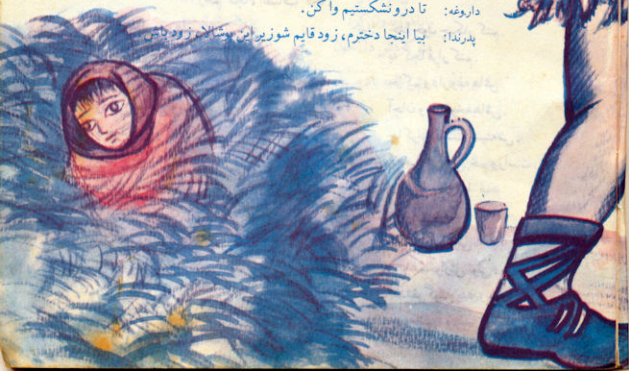 داروغه: تا در و نشکستیم وا کن.
پدرندا: بیا اینجا دخترم، زود قایم شو زیر این پوشالا، زود باش